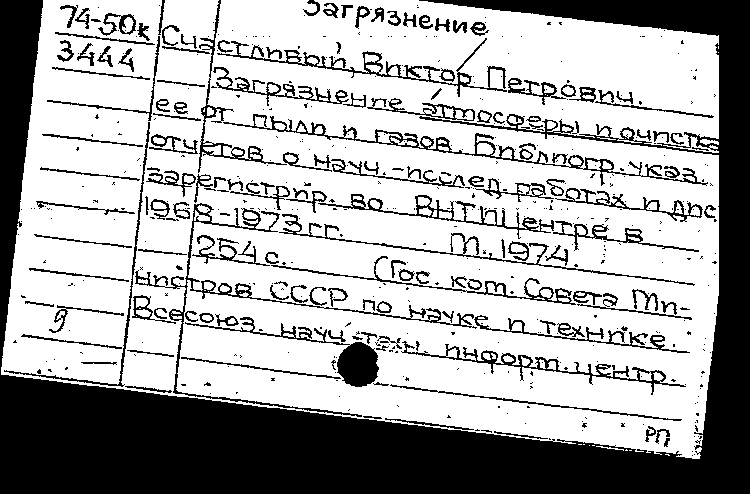 Загрязнение
74-50к
3444
Счастливый, Виктор Петрович.
Загрязнение атмосферы и очистка
ее от пыли и газов. Библиогр. указ.
отчетов о науч.-исслед. работах и дис
зарегистрир. во ВНТИЦентре в
1968-1973 гг. М., 1974.
254 с. (Гос. ком. Совета Ми-
нистров СССР по науке и технике.
Всесоюз. науч-техн. информ. центр.
9
РП